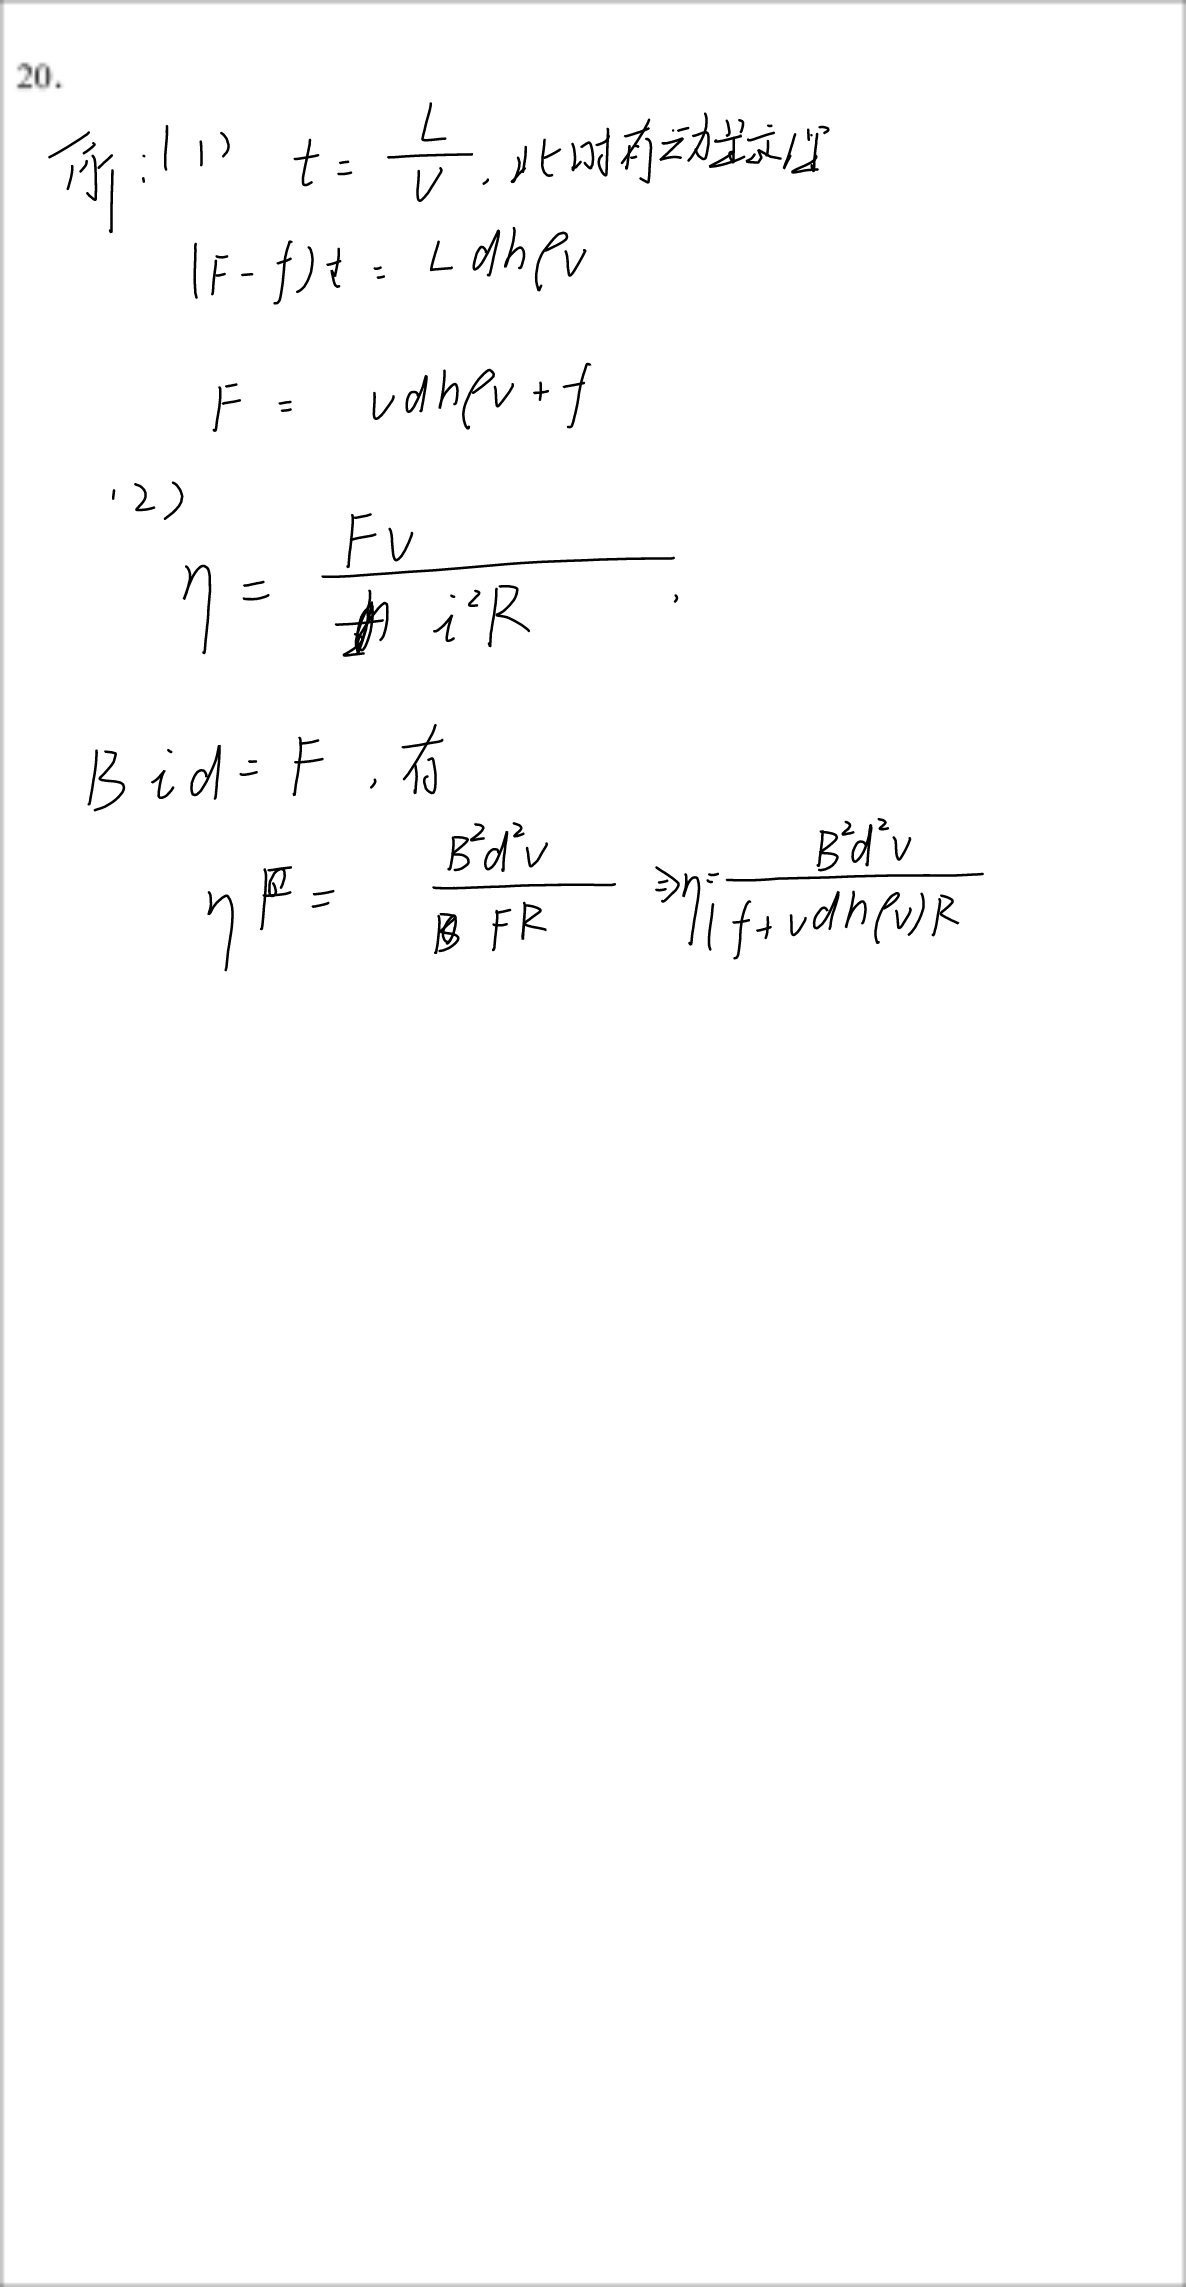 20.
解:(1) t = L/V, 此时有动量定理
(F-f)t = Ldhρv
F = vdhρv+f
(2)
η = Fv / i²R ,
Bid = F, 有
η = B²d²v / FR ⇒ η = B²d²v / (f+vdhρv)R